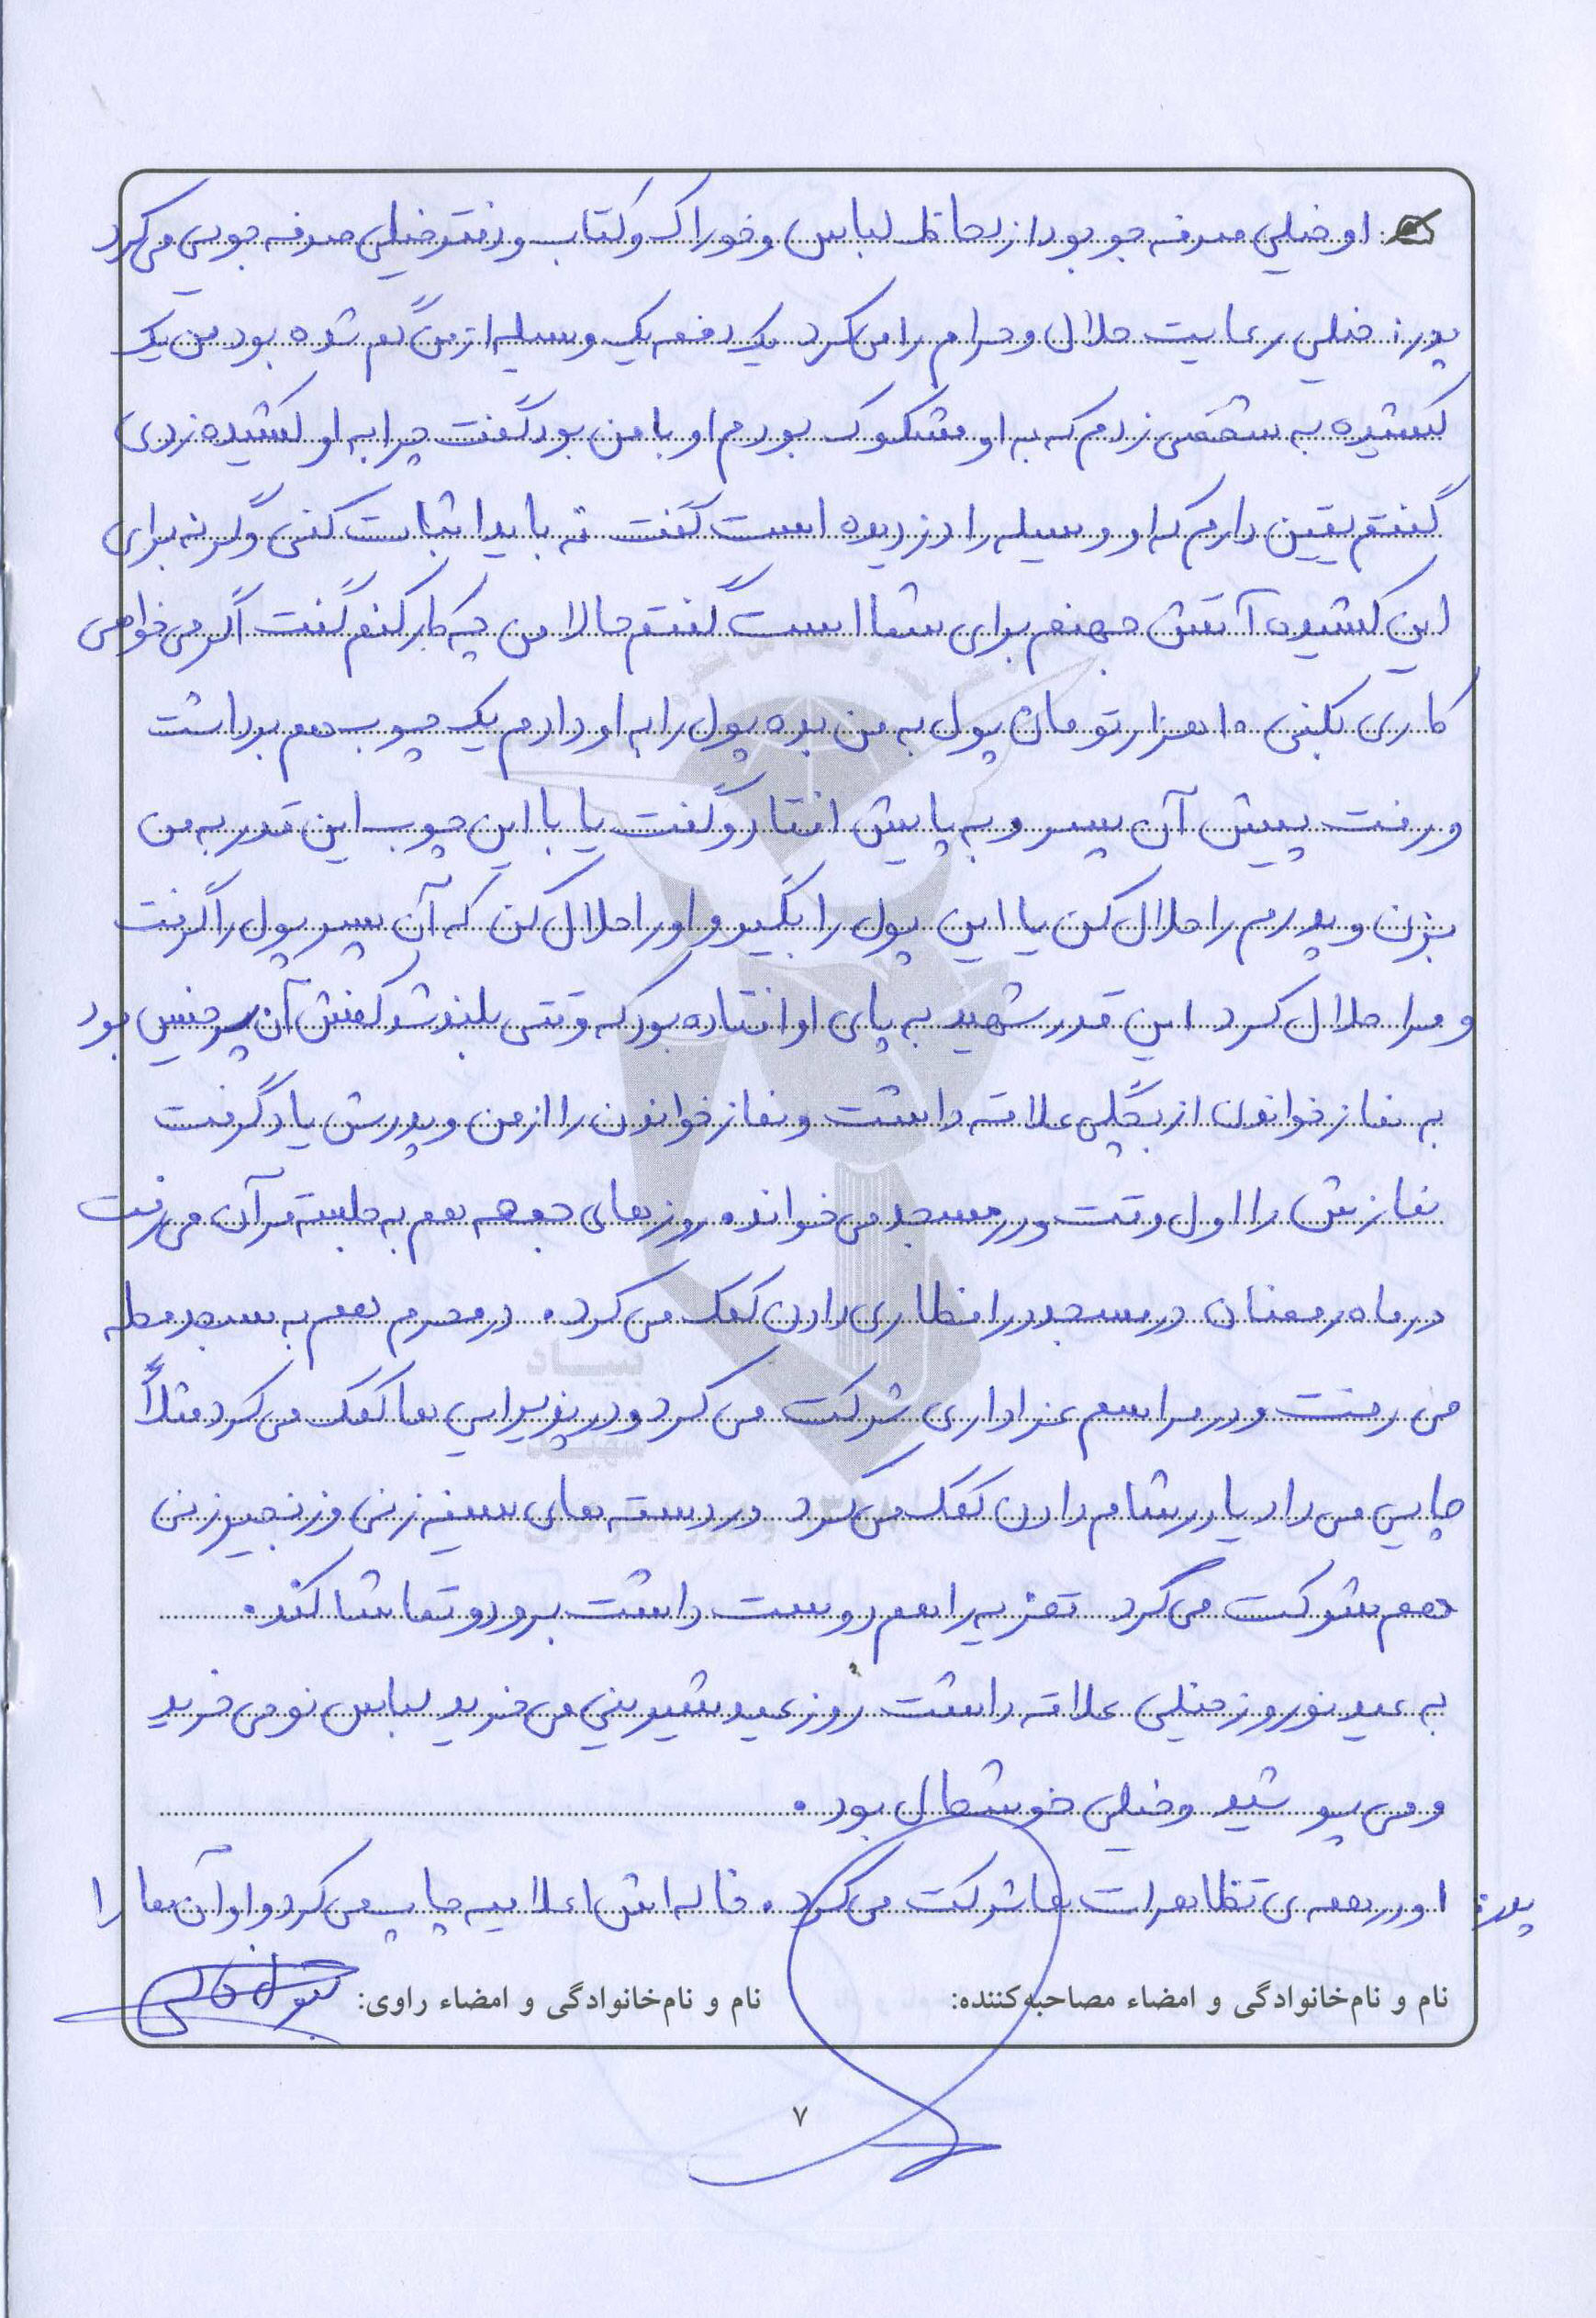 او خیلی صرفه جو بود از لحاظ لباس و خوراک و کتاب و دفتر خیلی صرفه جویی می کرد
پدر: خیلی رعایت حلال و حرام را می کرد یک دفعه یک وسیله از من گم شده بود من یک
کشیده به شخصی زدم که به او مشکوک بودم او با من بود گفت چرا به او کشیده زدی
گفتم یقین دارم که او وسیله را دزدیده است گفت نه باید اثبات کنی وگرنه برای
این کشیده آتش جهنم برای شما است گفتم حالا من چه کار کنم گفت اگر می خواهی
کاری بکنی ۱۰ هزار تومان پول به من بده پول را به او دادم یک چوب هم برداشت
و رفت پیش آن پسر و به پایش افتاد و گفت یا با این چوب این قدر به من
بزن و پدرم را حلال کن یا این پول را بگیر و او را حلال کن که آن پسر پول را گرفت
و مرا حلال کرد این قدر شهید به پای او افتاده بود که وقتی بلند شد کفش آن پسر خیس بود
به نماز خواندن از بچگی علاقه داشت و نماز خواندن را از من و پدرش یاد گرفت
نمازش را اول وقت و در مسجد می خواند. روزهای جمعه هم به جلسه قرآن می رفت
در ماه رمضان در مسجد در افطاری دادن کمک می کرد. در محرم هم به مسجد محله
می رفت و در مراسم عزاداری شرکت می کرد و در پذیرایی ها کمک می کرد مثلاً
چایی می داد یا در شام دادن کمک می کرد در دسته های سینه زنی و زنجیر زنی
هم شرکت می کرد تعزیه را هم دوست داشت برود و تماشا کند.
به عید نوروز خیلی علاقه داشت روز عید شیرینی می خرید لباس نو می خرید
و می پوشید و خیلی خوشحال بود.
پدر: او در همه ی تظاهرات ها شرکت می کرد. خاله اش اعلامیه چاپ می کرد و او آن ها را
نام و نام‌خانوادگی و امضاء مصاحبه‌کننده: نام و نام‌خانوادگی و امضاء راوی:
۷